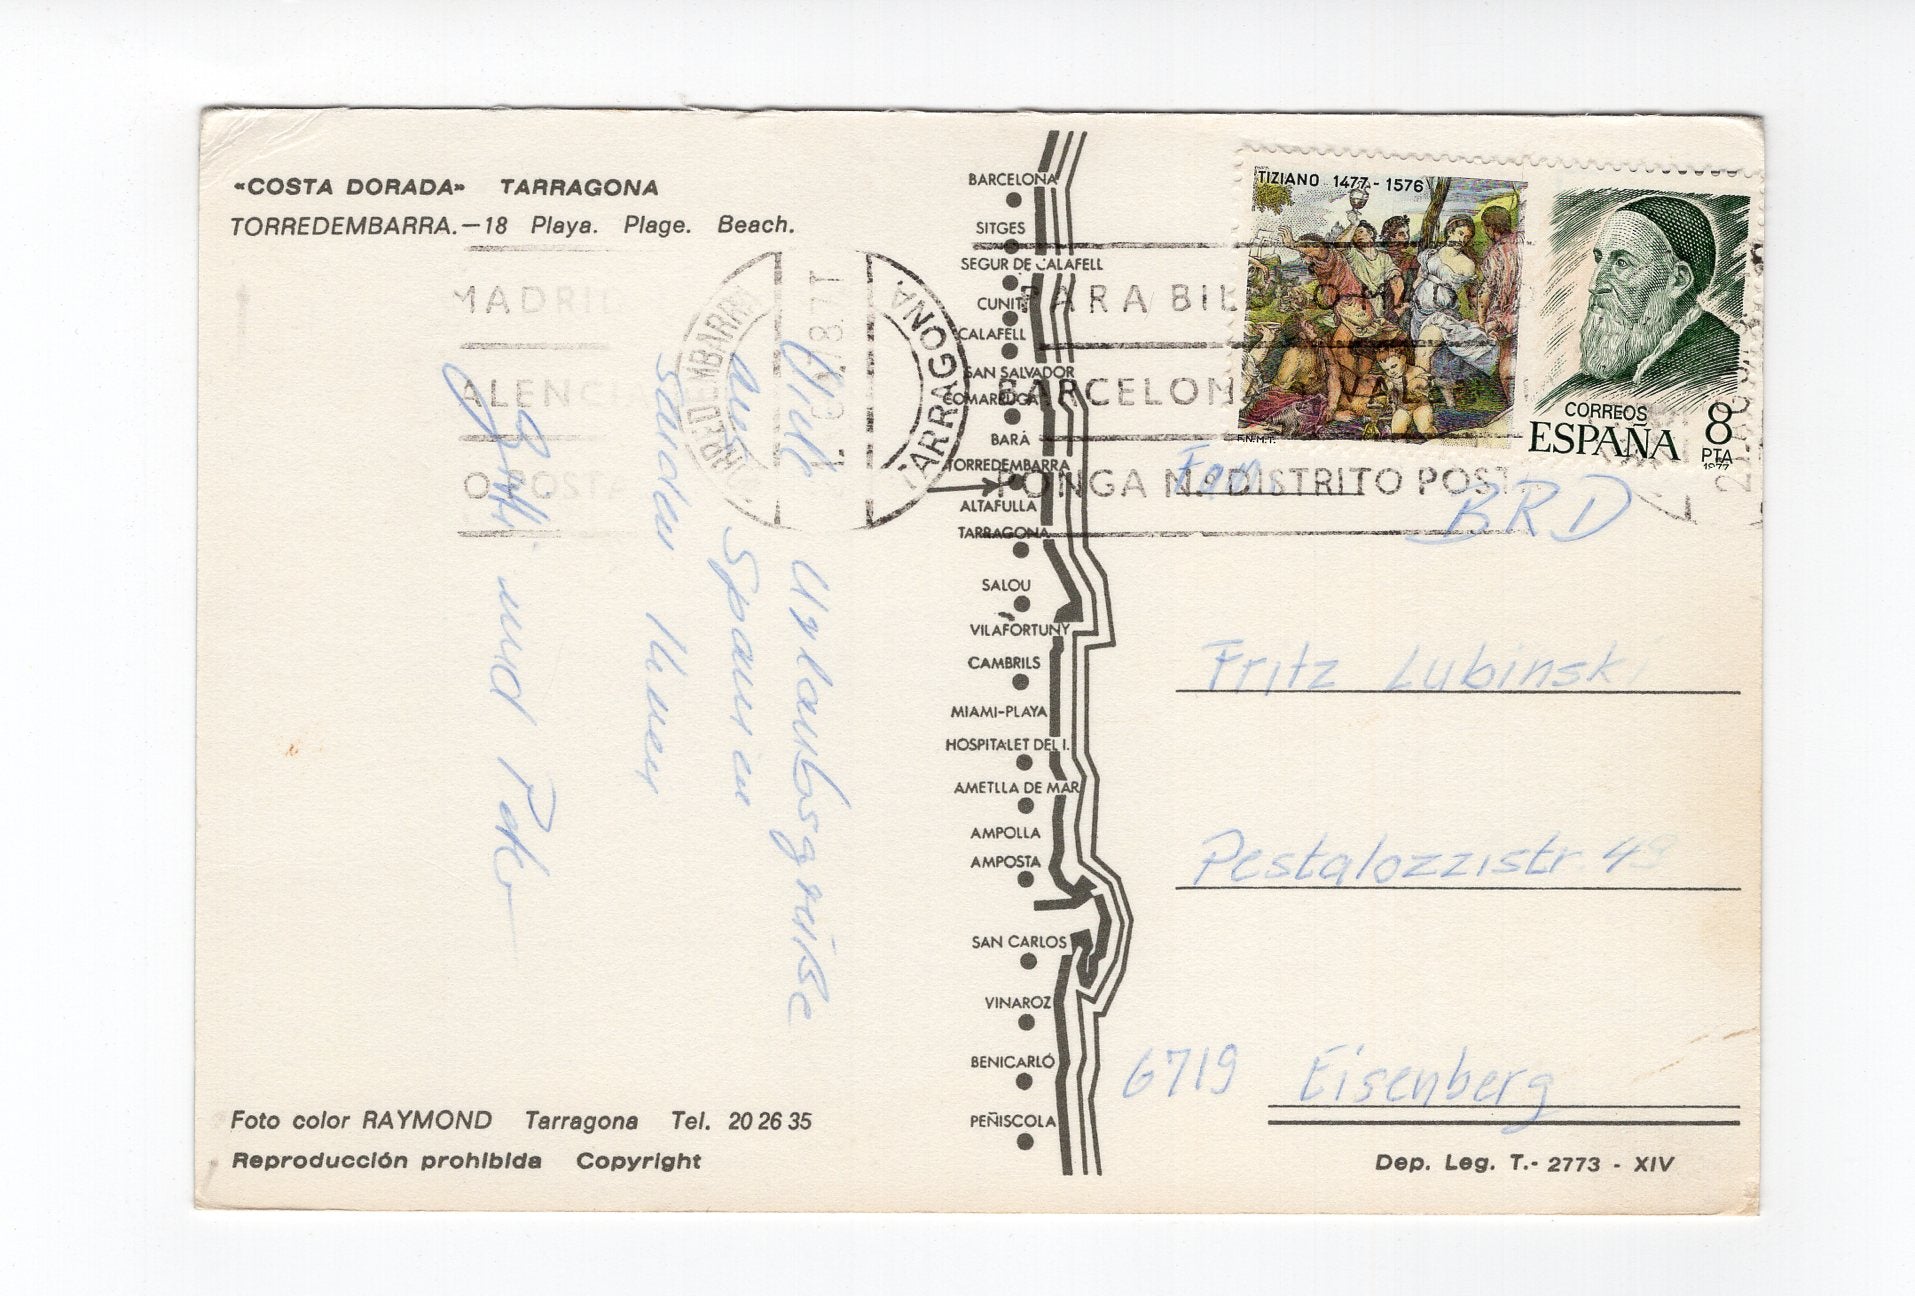 «COSTA DORADA» TARRAGONA
TORREDEMBARRA.—18 Playa. Plage. Beach.
MADRID
ALENCIA
O POSTA
TORREDEMBARRA
TARRAGONA.
Viele Urlaubsgrüße
aus Spanien
senden Ihnen
und
Foto color RAYMOND Tarragona Tel. 20 26 35
Reproducción prohibida Copyright
BARCELONA
SITGES
SEGUR DE CALAFELL
CUNIT
CALAFELL
SAN SALVADOR
COMARRUGA
BARÁ
TORREDEMBARRA
ALTAFULLA
TARRAGONA
SALOU
VILAFORTUNY
CAMBRILS
MIAMI-PLAYA
HOSPITALET DEL I.
AMETLLA DE MAR
AMPOLLA
AMPOSTA
SAN CARLOS
VINAROZ
BENICARLÓ
PEÑISCOLA
PARA BILBAO MADRID
BARCELONA VALENCIA
PONGA N.º DISTRITO POSTAL
TIZIANO 1477-1576
F.N.M.T.
CORREOS
ESPAÑA
8
PTA
1977
Fam.
BRD
Fritz Lubinski
Pestalozzistr. 49
6719 Eisenberg
Dep. Leg. T.- 2773 - XIV